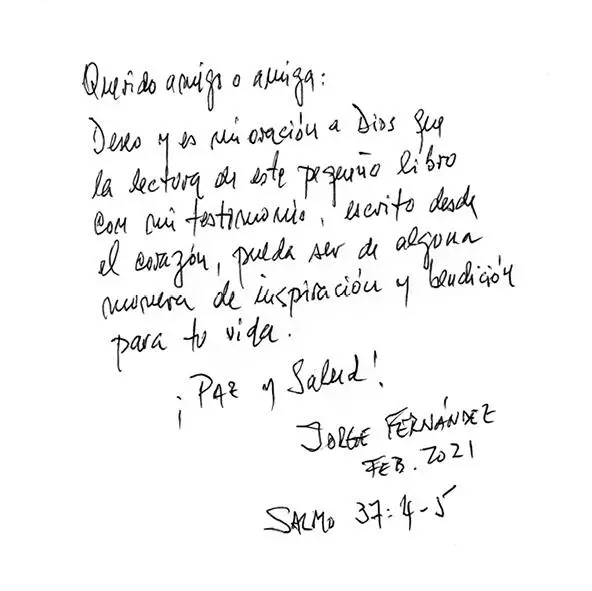 Querido amigo o amiga:
Deseo y es mi oración a Dios que
la lectura de este pequeño libro
con mi testimonio, escrito desde
el corazón, pueda ser de alguna
manera de inspiración y bendición
para tu vida.
¡PAZ y Salud!
JORGE FERNÁNDEZ
FEB. 2021
SALMO 37:4-5